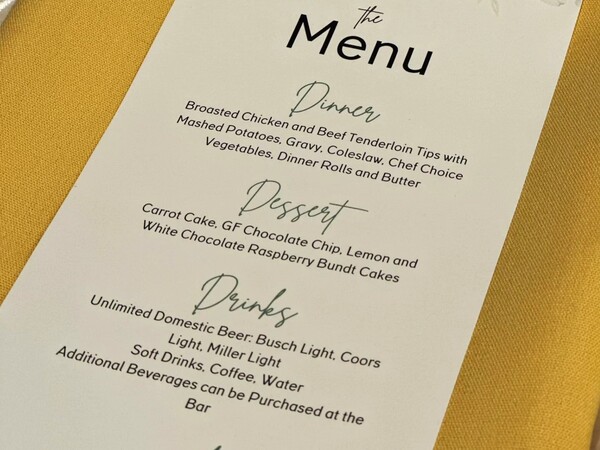 the
Menu
Dinner
Broasted Chicken and Beef Tenderloin Tips with
Mashed Potatoes, Gravy, Coleslaw, Chef Choice
Vegetables, Dinner Rolls and Butter
Dessert
Carrot Cake, GF Chocolate Chip, Lemon and
White Chocolate Raspberry Bundt Cakes
Drinks
Unlimited Domestic Beer: Busch Light, Coors
Light, Miller Light
Soft Drinks, Coffee, Water
Additional Beverages can be Purchased at the
Bar